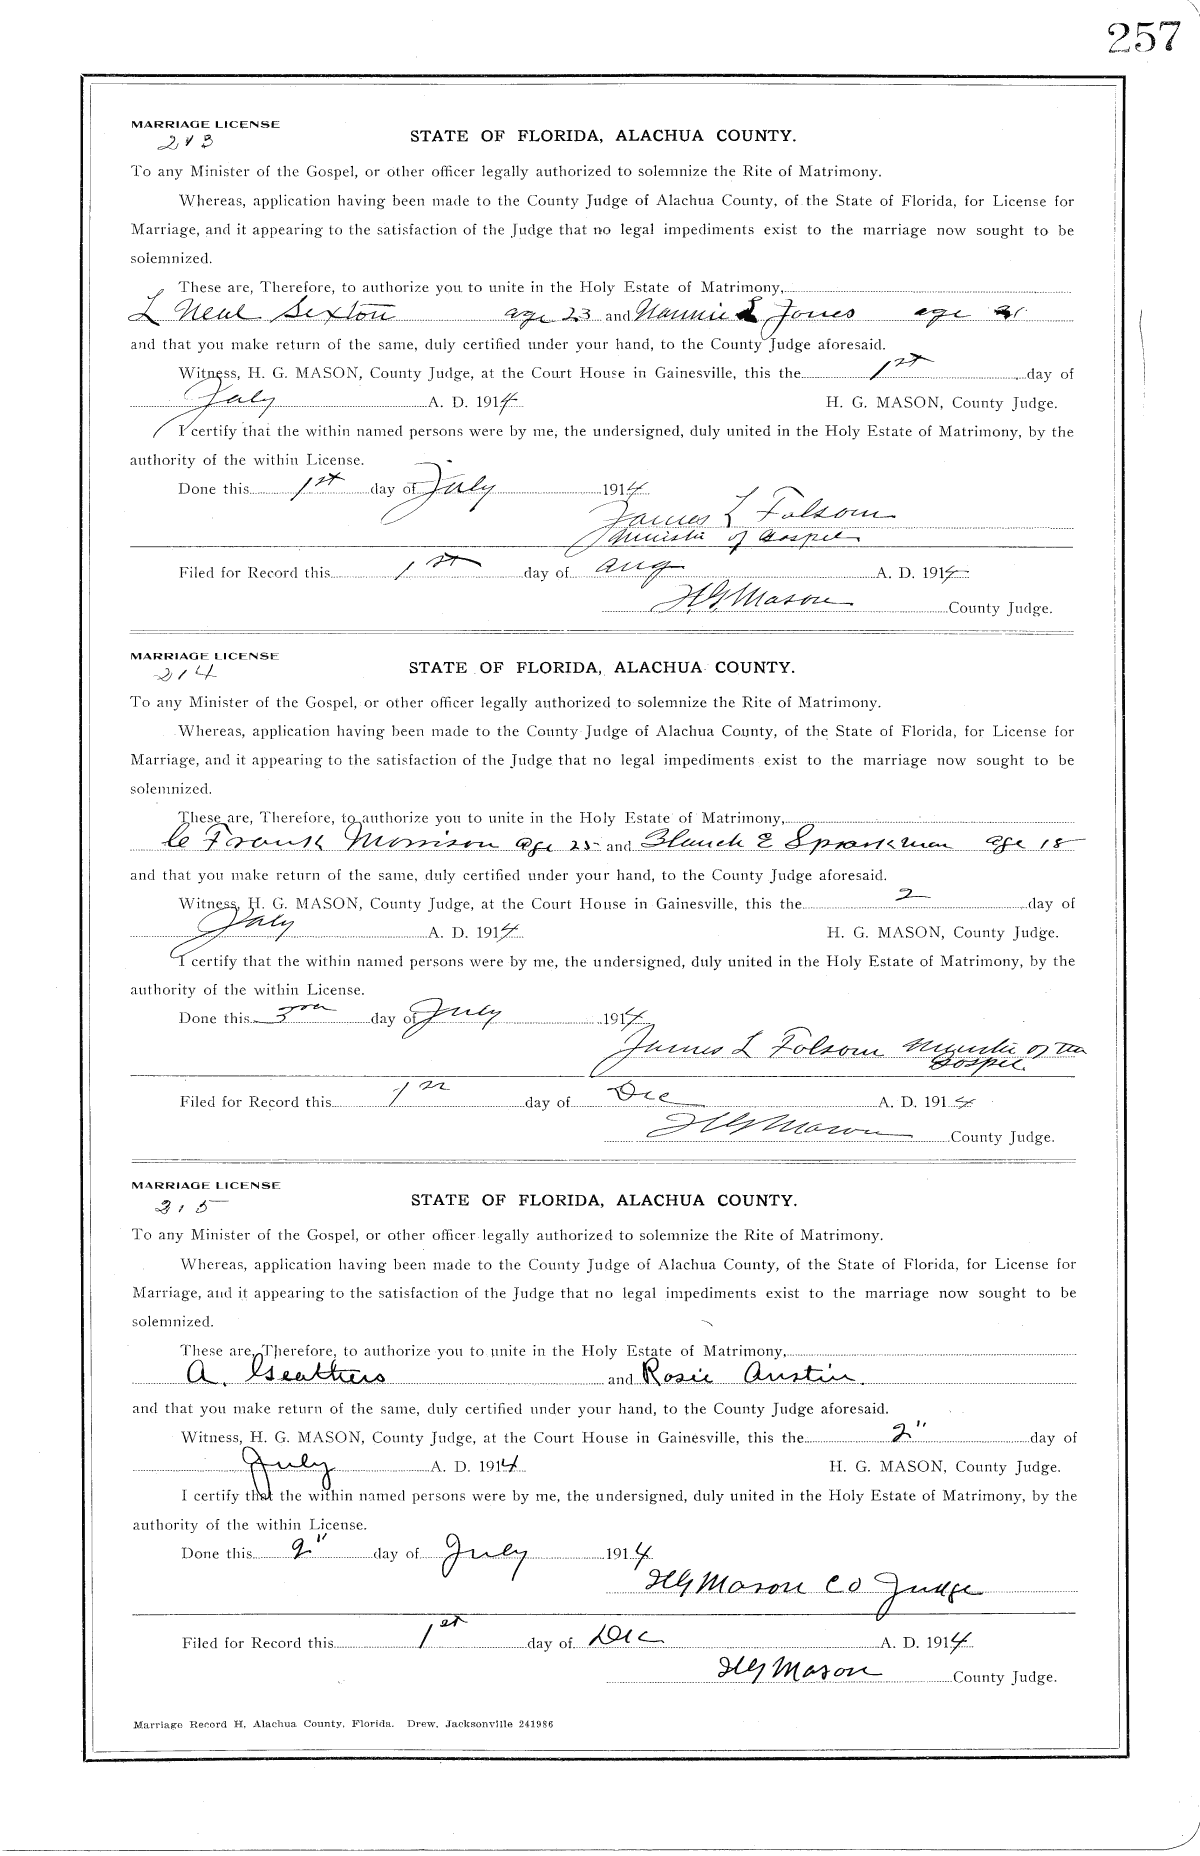 257
MARRIAGE LICENSE
213
STATE OF FLORIDA, ALACHUA COUNTY.
To any Minister of the Gospel, or other officer legally authorized to solemnize the Rite of Matrimony.
Whereas, application having been made to the County Judge of Alachua County, of the State of Florida, for License for
Marriage, and it appearing to the satisfaction of the Judge that no legal impediments exist to the marriage now sought to be
solemnized.
These are, Therefore, to authorize you to unite in the Holy Estate of Matrimony,
L Neal Sexton age 23 and Nannie L Jones age
and that you make return of the same, duly certified under your hand, to the County Judge aforesaid.
Witness, H. G. MASON, County Judge, at the Court House in Gainesville, this the 1st day of
July A. D. 1914 H. G. MASON, County Judge.
I certify that the within named persons were by me, the undersigned, duly united in the Holy Estate of Matrimony, by the
authority of the within License.
Done this 1st day of July 1914
James L Folsom
Minister of Gospel
Filed for Record this 1st day of Aug A. D. 1914
H G Mason County Judge.
MARRIAGE LICENSE
214
STATE OF FLORIDA, ALACHUA COUNTY.
To any Minister of the Gospel, or other officer legally authorized to solemnize the Rite of Matrimony.
Whereas, application having been made to the County Judge of Alachua County, of the State of Florida, for License for
Marriage, and it appearing to the satisfaction of the Judge that no legal impediments exist to the marriage now sought to be
solemnized.
These are, Therefore, to authorize you to unite in the Holy Estate of Matrimony,
C Frank Morrison age 25 and Blanch E Sparkman age 18
and that you make return of the same, duly certified under your hand, to the County Judge aforesaid.
Witness, H. G. MASON, County Judge, at the Court House in Gainesville, this the 2 day of
July A. D. 1914 H. G. MASON, County Judge.
I certify that the within named persons were by me, the undersigned, duly united in the Holy Estate of Matrimony, by the
authority of the within License.
Done this 3rd day of July 1914
James L Folsom Minister of the
Gospel.
Filed for Record this 1st day of Dec A. D. 1914
H G Mason County Judge.
MARRIAGE LICENSE
215
STATE OF FLORIDA, ALACHUA COUNTY.
To any Minister of the Gospel, or other officer legally authorized to solemnize the Rite of Matrimony.
Whereas, application having been made to the County Judge of Alachua County, of the State of Florida, for License for
Marriage, and it appearing to the satisfaction of the Judge that no legal impediments exist to the marriage now sought to be
solemnized.
These are, Therefore, to authorize you to unite in the Holy Estate of Matrimony,
A. Geathers and Rosie Austin.
and that you make return of the same, duly certified under your hand, to the County Judge aforesaid.
Witness, H. G. MASON, County Judge, at the Court House in Gainesville, this the 2" day of
July A. D. 1914 H. G. MASON, County Judge.
I certify that the within named persons were by me, the undersigned, duly united in the Holy Estate of Matrimony, by the
authority of the within License.
Done this 2" day of July 1914
H G Mason Co Judge
Filed for Record this 1st day of Dec A. D. 1914
H G Mason County Judge.
Marriage Record H, Alachua County, Florida. Drew, Jacksonville 241986